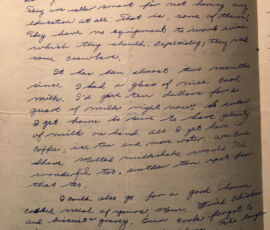 They are rather smart for not having any
education at all. That is, some of them.
They have no equipment to work with
which they should. Especially, they need
some crowbars.
It has ben almost two months
since I had a glass of nice cool
milk. I'd give ten dollars for a
quart of milk right now. So when
I get home be sure to have plenty
of milk on hand. All I get here is
coffee, ice tea and more water.
those malted milkshake would be
wonderful too. Another ten spot for
that too.
I could also go for a good home
cooked meal of yours, Mom. Fried chicken
and biscuits gravy. Our cooks forgot to